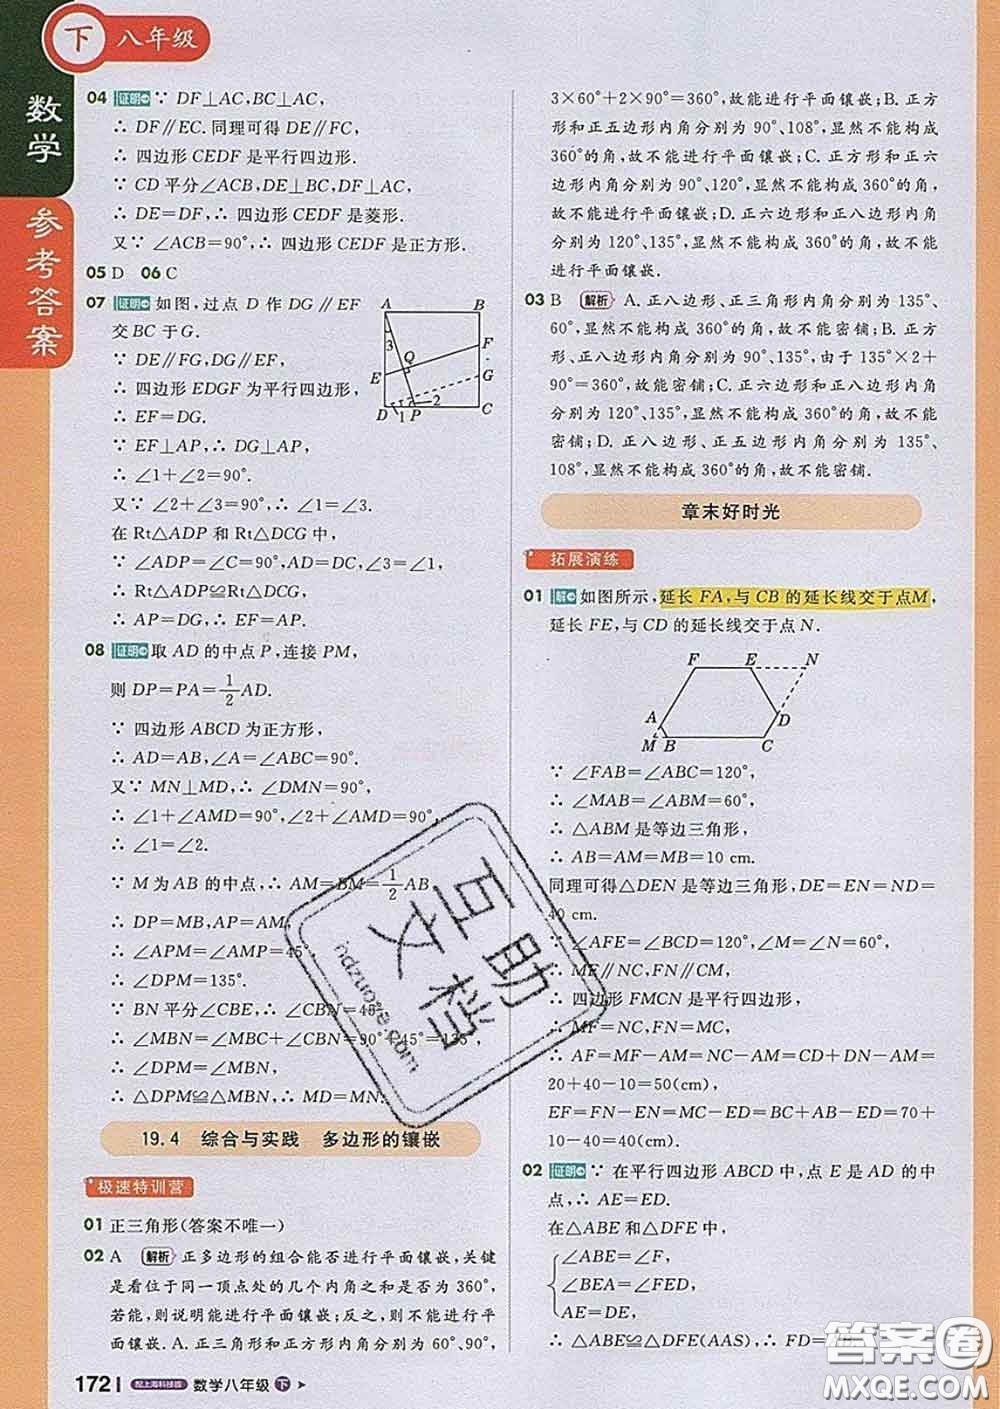 下 八年级
数学
参考答案
04 证明 ∵ DF⊥AC,BC⊥AC,
∴ DF∥EC.同理可得 DE∥FC,
∴ 四边形 CEDF 是平行四边形.
∵ CD 平分∠ACB,DE⊥BC,DF⊥AC,
∴ DE=DF,∴ 四边形 CEDF 是菱形.
又∵ ∠ACB=90°,∴ 四边形 CEDF 是正方形.
05 D 06 C
07 证明 如图,过点 D 作 DG∥EF
交 BC 于 G.
∵ DE∥FG,DG∥EF,
∴ 四边形 EDGF 为平行四边形,
∴ EF=DG.
∵ EF⊥AP,∴ DG⊥AP,
∴ ∠1+∠2=90°.
又∵ ∠2+∠3=90°,∴ ∠1=∠3.
在 Rt△ADP 和 Rt△DCG 中,
∵ ∠ADP=∠C=90°,AD=DC,∠3=∠1,
∴ Rt△ADP≌Rt△DCG,
∴ AP=DG,∴ EF=AP.
A B
3 F
Q
E G
2
D 1 P C
08 证明 取 AD 的中点 P,连接 PM,
则 DP=PA=1/2AD.
∵ 四边形 ABCD 为正方形,
∴ AD=AB,∠A=∠ABC=90°.
又∵ MN⊥MD,∴ ∠DMN=90°,
∴ ∠1+∠AMD=90°,∠2+∠AMD=90°,
∴ ∠1=∠2.
∵ M 为 AB 的中点,∴ AM=BM=1/2AB,
∴ DP=MB,AP=AM,
∴ ∠APM=∠AMP=45°,
∴ ∠DPM=135°.
∵ BN 平分∠CBE,∴ ∠CBN=45°,
∴ ∠MBN=∠MBC+∠CBN=90°+45°=135°,
∴ ∠DPM=∠MBN,
∴ △DPM≌△MBN,∴ MD=MN.
19.4 综合与实践 多边形的镶嵌
极速特训营
01 正三角形(答案不唯一)
02 A 解析 正多边形的组合能否进行平面镶嵌,关键
是看位于同一顶点处的几个内角之和是否为 360°,
若能,则说明能进行平面镶嵌;反之,则不能进行平
面镶嵌.A.正三角形和正方形内角分别为 60°、90°,
3×60°+2×90°=360°,故能进行平面镶嵌;B.正方
形和正五边形内角分别为 90°、108°,显然不能构成
360°的角,故不能进行平面镶嵌;C.正方形和正六
边形内角分别为90°、120°,显然不能构成360°的角,
故不能进行平面镶嵌;D.正六边形和正八边形内角
分别为 120°、135°,显然不能构成 360°的角,故不能
进行平面镶嵌.
03 B 解析 A.正八边形、正三角形内角分别为 135°、
60°,显然不能构成 360°的角,故不能密铺;B.正方
形、正八边形内角分别为 90°、135°,由于 135°×2+
90°=360°,故能密铺;C.正六边形和正八边形内角
分别为 120°、135°,显然不能构成 360°的角,故不能
密铺;D.正八边形、正五边形内角分别为 135°、
108°,显然不能构成 360°的角,故不能密铺.
章末好时光
拓展演练
01 解 如图所示,延长 FA,与 CB 的延长线交于点M,
延长 FE,与 CD 的延长线交于点 N.
F E N
A D
M B C
∵ ∠FAB=∠ABC=120°,
∴ ∠MAB=∠ABM=60°,
∴ △ABM 是等边三角形,
∴ AB=AM=MB=10 cm.
同理可得△DEN 是等边三角形,DE=EN=ND=
40 cm.
∵ ∠AFE=∠BCD=120°,∠M=∠N=60°,
∴ ME∥NC,FN∥CM,
∴ 四边形 FMCN 是平行四边形,
∴ MF=NC,FN=MC,
∴ AF=MF-AM=NC-AM=CD+DN-AM=
20+40-10=50(cm),
EF=FN-EN=MC-EN=MB+BC-EN=70+
10-40=40(cm).
02 证明 ∵ 在平行四边形 ABCD 中,点 E 是 AD 的中
点,∴ AE=ED.
在△ABE 和△DFE 中,
∠ABE=∠F,
∠BEA=∠FED,
AE=DE,
∴ △ABE≌△DFE(AAS),∴ FD=
互助
文档
答案圈
MXQE.COM
172 配上海科技版 数学八年级 下